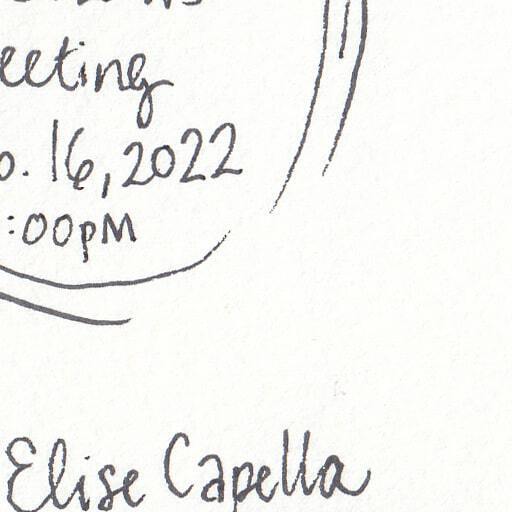 eeting
b. 16, 2022
:00pM
Elise Capella